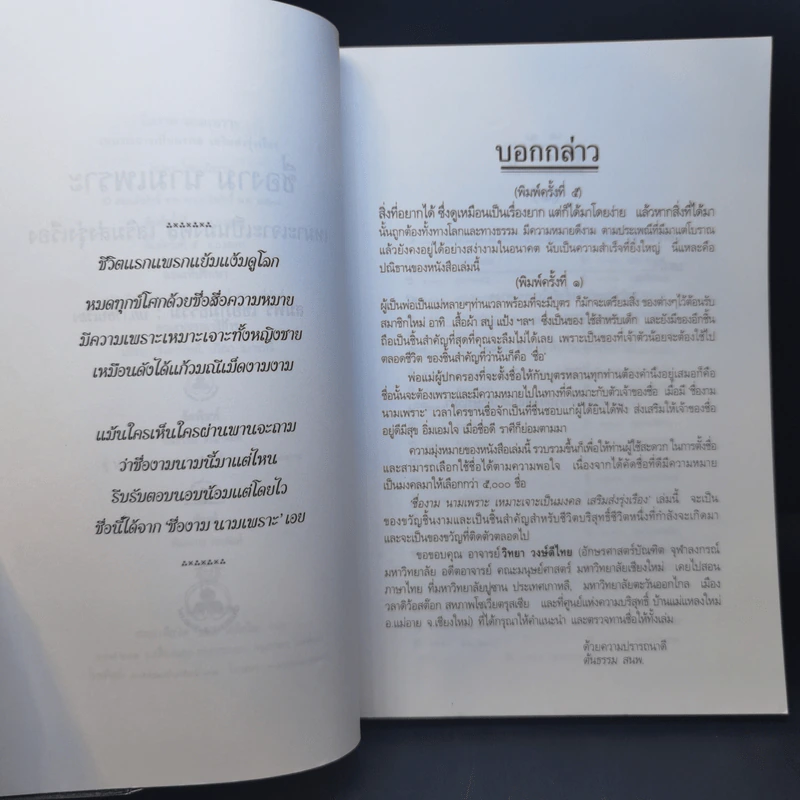 ชีวิตแรกแพรกแย้มแง้มดูโลก
หมดทุกข์โศกด้วยชื่อสื่อความหมาย
มีความเพราะเหมาะเจาะทั้งหญิงชาย
เหมือนดังได้แก้วมณีเม็ดงามงาม
แม้นใครเห็นใครผ่านพานจะถาม
ว่าชื่องามนามนี้มาแต่ไหน
รีบรับตอบนอบน้อมแต่โดยไว
ชื่อนี้ได้จาก 'ชื่องาม นามเพราะ' เอย
บอกกล่าว
(พิมพ์ครั้งที่ ๕)
สิ่งที่อยากได้ ซึ่งดูเหมือนเป็นเรื่องยาก แต่ก็ได้มาโดยง่าย แล้วหากสิ่งที่ได้มา
นั้นถูกต้องทั้งทางโลกและทางธรรม มีความหมายดีงาม ตามประเพณีที่มีมาแต่โบราณ
แล้วยังคงอยู่ได้อย่างสง่างามในอนาคต นับเป็นความสำเร็จที่ยิ่งใหญ่ นี่แหละคือ
ปณิธานของหนังสือเล่มนี้
(พิมพ์ครั้งที่ ๑)
ผู้เป็นพ่อเป็นแม่หลายๆท่านเวลาพร้อมที่จะมีบุตร ก็มักจะเตรียมสิ่งของต่างๆไว้ต้อนรับ
สมาชิกใหม่ อาทิ เสื้อผ้า สบู่ แป้ง ฯลฯ ซึ่งเป็นของใช้สำหรับเด็ก และยังมีของอีกชิ้น
ถือเป็นชิ้นสำคัญที่สุดที่คุณจะลืมไม่ได้เลย เพราะเป็นของที่เจ้าตัวน้อยจะต้องใช้ไป
ตลอดชีวิต ของชิ้นสำคัญที่ว่านั้นก็คือ 'ชื่อ'
พ่อแม่ผู้ปกครองที่จะตั้งชื่อให้กับบุตรหลานทุกท่านต้องคำนึงอยู่เสมอก็คือ
ชื่อนั้นจะต้องเพราะและมีความหมายไปในทางที่ดีเหมาะกับตัวเจ้าของชื่อ เมื่อมี 'ชื่องาม
นามเพราะ' เวลาใครขานชื่อจักเป็นที่ชื่นชอบแก่ผู้ได้ยินได้ฟัง ส่งเสริมให้เจ้าของชื่อ
อยู่ดีมีสุข อิ่มเอมใจ เมื่อชื่อดี ราศีก็ย่อมตามมา
ความมุ่งหมายของหนังสือเล่มนี้ รวบรวมขึ้นก็เพื่อให้ท่านผู้ใช้สะดวกในการตั้งชื่อ
และสามารถเลือกใช้ชื่อได้ตามความพอใจ เนื่องจากได้คัดชื่อที่ดีมีความหมาย
เป็นมงคลมาให้เลือกกว่า ๕,๐๐๐ ชื่อ
'ชื่องาม นามเพราะ เหมาะเจาะเป็นมงคล เสริมส่งรุ่งเรือง' เล่มนี้ จะเป็น
ของขวัญชิ้นงามและเป็นชิ้นสำคัญสำหรับชีวิตบริสุทธิ์ชีวิตหนึ่งที่กำลังจะเกิดมา
และจะเป็นของขวัญที่ติดตัวตลอดไป
ขอขอบคุณ อาจารย์วิทยา วงษ์ดีไทย (อักษรศาสตร์บัณฑิต จุฬาลงกรณ์
มหาวิทยาลัย อดีตอาจารย์ คณะมนุษย์ศาสตร์ มหาวิทยาลัยเชียงใหม่ เคยไปสอน
ภาษาไทย ที่มหาวิทยาลัยปูซาน ประเทศเกาหลี, มหาวิทยาลัยตะวันออกไกล เมือง
วลาดิวอสต๊อก สหภาพโซเวียตรุสเซีย และที่ศูนย์แห่งความบริสุทธิ์ บ้านแม่แหลงใหม่
อ.แม่อาย จ.เชียงใหม่) ที่ได้กรุณาให้คำแนะนำ และตรวจทานชื่อให้ทั้งเล่ม
ด้วยความปรารถนาดี
ต้นธรรม สนพ.